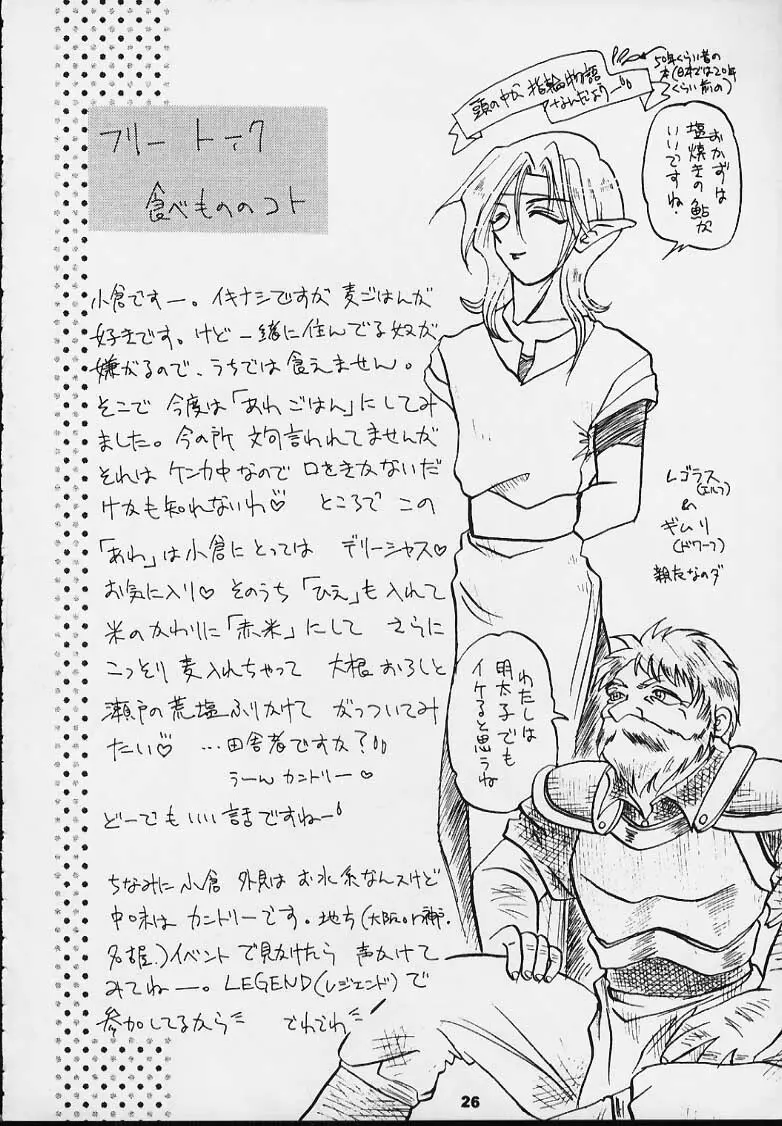 フリートーク
食べもののコト
小倉ですー。イキナシですが 麦ごはんが
好きです。けど 一緒に住んでる奴が
嫌がるので、うちでは食えません。
そこで 今度は「あわごはん」にしてみ
ました。今の所 文句言われてませんが
それは ケンカ中なので 口をきかないだ
けかも知れないわ♡ ところで この
「あわ」は小倉にとっては デリーシャス♡
お気に入り♡ そのうち「ひえ」も入れて
米のかわりに「赤米」にして さらに
こっそり 麦入れちゃって 大根おろしと
瀬戸の荒塩ふりかけて がっついてみ
たい♡ …田舎者ですか？
うーん カントリー♡
どーでもいい話ですねー
ちなみに 小倉 外見は お水系なんスけど
中味は カントリーです。地方(大阪or神戸.
名古屋.)イベントで見かけたら 声かけて
みてねー。LEGEND(レジェンド)で
参加してるから でわでわ
頭の中が 指輪物語
なんだよりー
50年くらい昔の
本(日本では20年
くらい前の)
おかずは
塩焼きの鮎が
いいですね.
レゴラス
(エルフ)
&
ギムリ
(ドワーフ)
親友なのダ
わたしは
明太子でも
イケると思うね
26